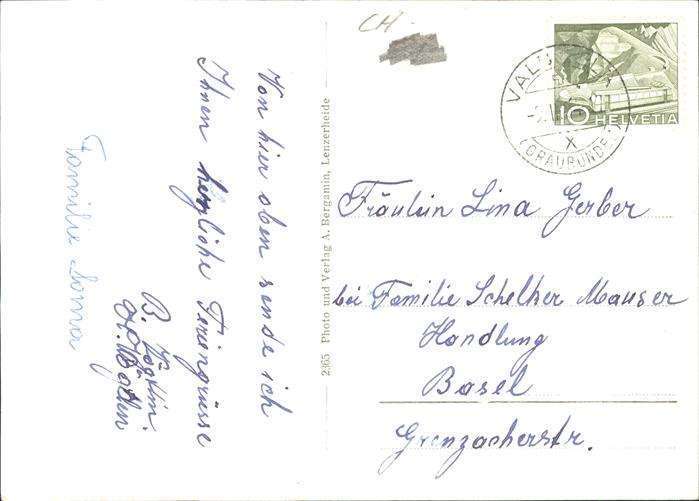 CH.
Von hier oben sende ich
Ihnen herzliche Feriengrüsse
B.
Familie
2365 Photo und Verlag A. Bergamin, Lenzerheide
10 HELVETIA
(GRAUBÜNDEN)
Fräulein Lina Gerber
bei Familie Schelker Mauser
Handlung
Basel
Grenzacherstr.